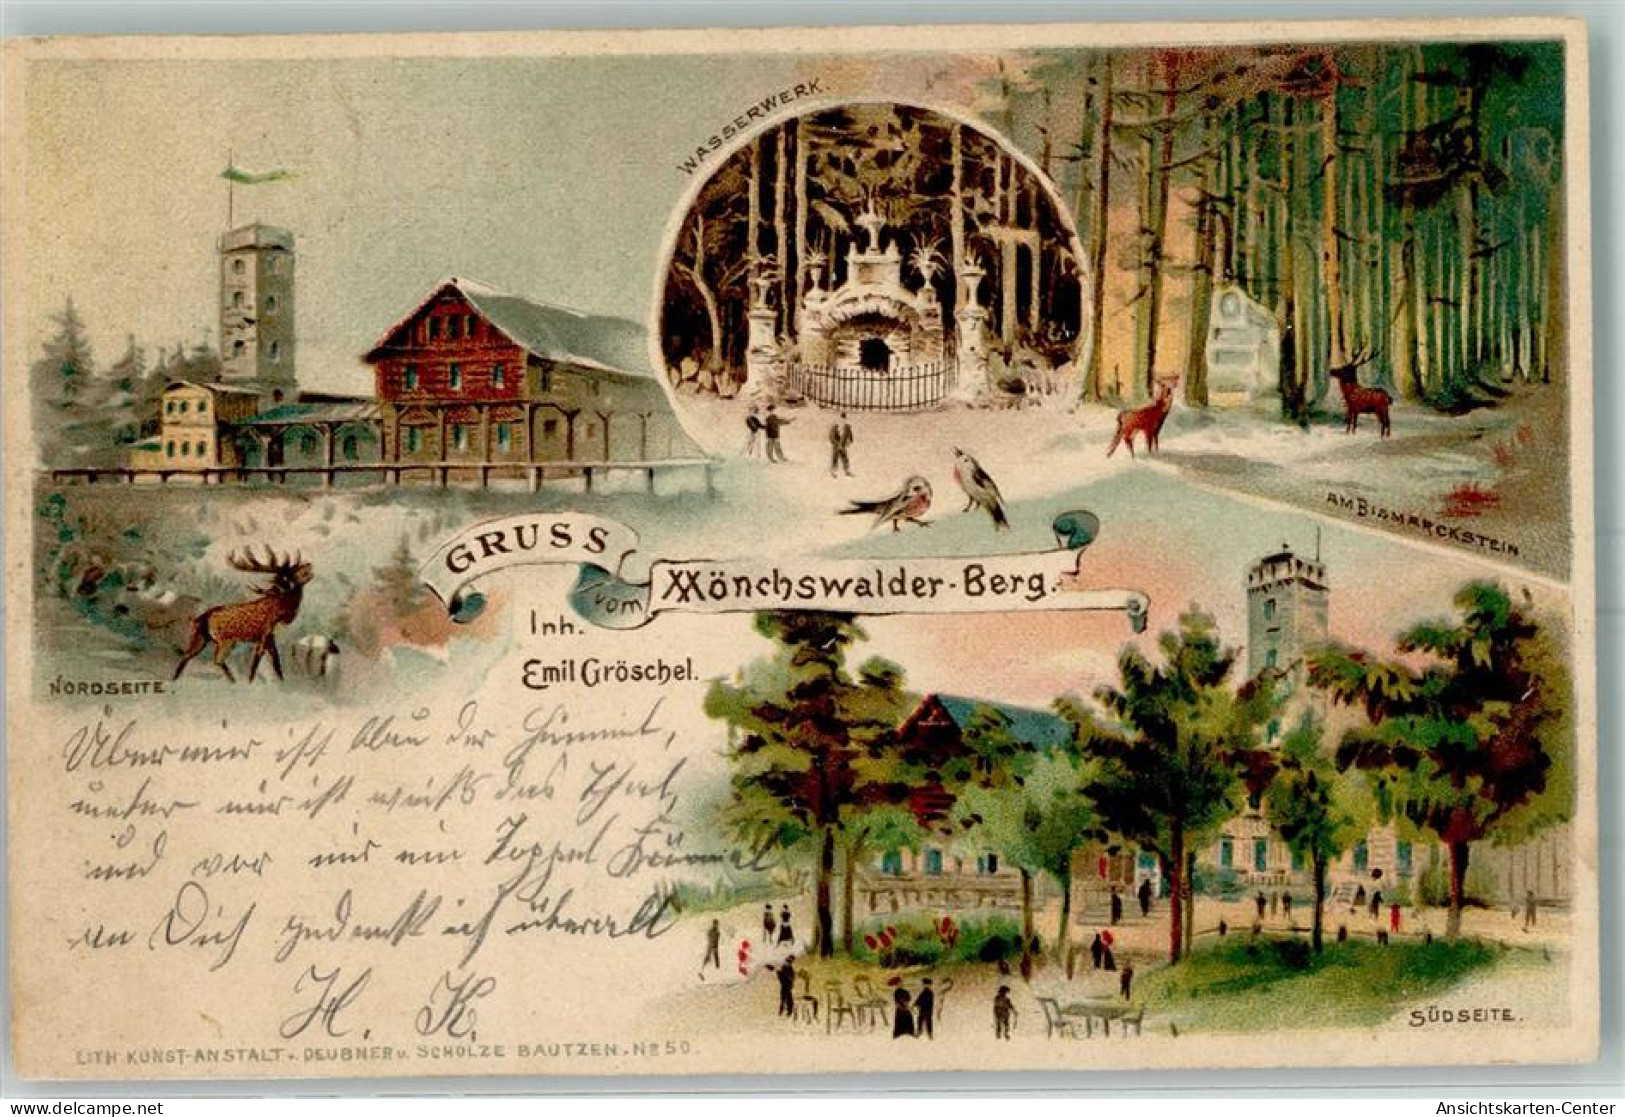 WASSERWERK.
AM BISMARCKSTEIN
GRUSS
vom Mönchswalder-Berg.
Inh.
Emil Gröschel.
NORDSEITE.
Über mir ist blau der Himmel,
unter mir ist weiß das Thal,
und vor mir ein Doppel Kümmel
an Dich gedenk ich überall
H. K.
SÜDSEITE.
LITH KUNST-ANSTALT v. DEUBNER u. SCHOLZE BAUTZEN. No 50.
Ansichtskarten-Center
www.delcampe.net